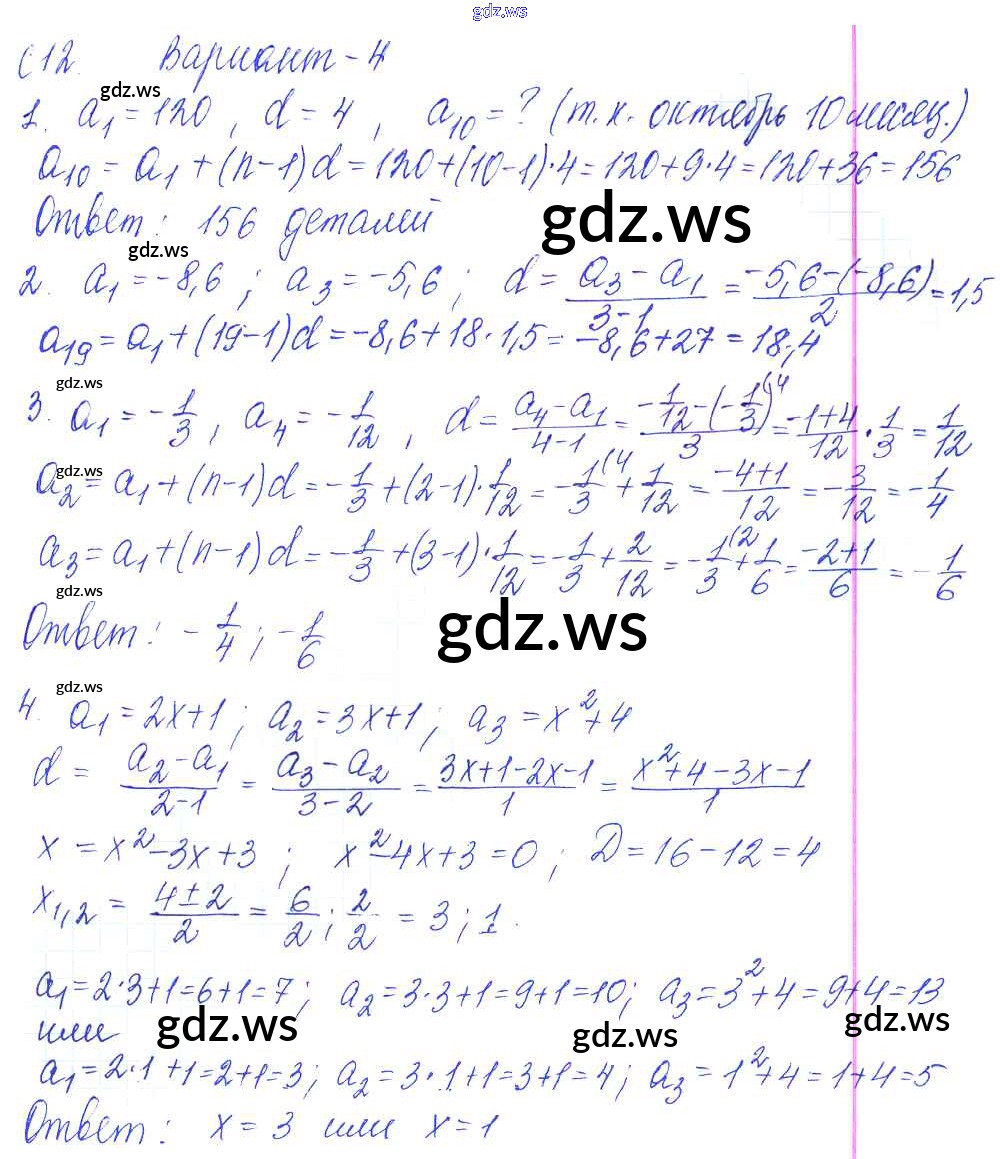 gdz.ws
С12. Вариант-4
gdz.ws
1. a₁ = 120, d = 4, a₁₀ = ? (т.к. октябрь 10 месяц.)
a₁₀ = a₁ + (n-1)d = 120+(10-1)·4 = 120+9·4 = 120+36 = 156
Ответ: 156 деталей
gdz.ws
gdz.ws
2. a₁ = -8,6; a₃ = -5,6; d = (a₃ - a₁)/(3-1) = (-5,6-(-8,6))/2 = 1,5
a₁₉ = a₁ + (19-1)d = -8,6 + 18·1,5 = -8,6+27 = 18,4
gdz.ws
3. a₁ = -1/3, a₄ = -1/12, d = (a₄ - a₁)/(4-1) = (-1/12-(-1/3)⁽⁴)/3 = (-1+4)/12 · 1/3 = 1/12
gdz.ws
a₂ = a₁ + (n-1)d = -1/3 + (2-1)·1/12 = -1/3⁽⁴ + 1/12 = (-4+1)/12 = -3/12 = -1/4
a₃ = a₁ + (n-1)d = -1/3 + (3-1)·1/12 = -1/3 + 2/12 = -1/3⁽² + 1/6 = (-2+1)/6 = -1/6
gdz.ws
Ответ: -1/4; -1/6
gdz.ws
gdz.ws
4. a₁ = 2x+1; a₂ = 3x+1; a₃ = x²+4
d = (a₂ - a₁)/(2-1) = (a₃ - a₂)/(3-2) = (3x+1-2x-1)/1 = (x²+4-3x-1)/1
x = x²-3x+3; x²-4x+3 = 0; D = 16-12 = 4
x₁,₂ = (4±2)/2 = 6/2; 2/2 = 3; 1.
a₁ = 2·3+1 = 6+1 = 7; a₂ = 3·3+1 = 9+1 = 10; a₃ = 3²+4 = 9+4 = 13
или
gdz.ws gdz.ws gdz.ws
a₁ = 2·1+1 = 2+1 = 3; a₂ = 3·1+1 = 3+1 = 4; a₃ = 1²+4 = 1+4 = 5
Ответ: x = 3 или x = 1